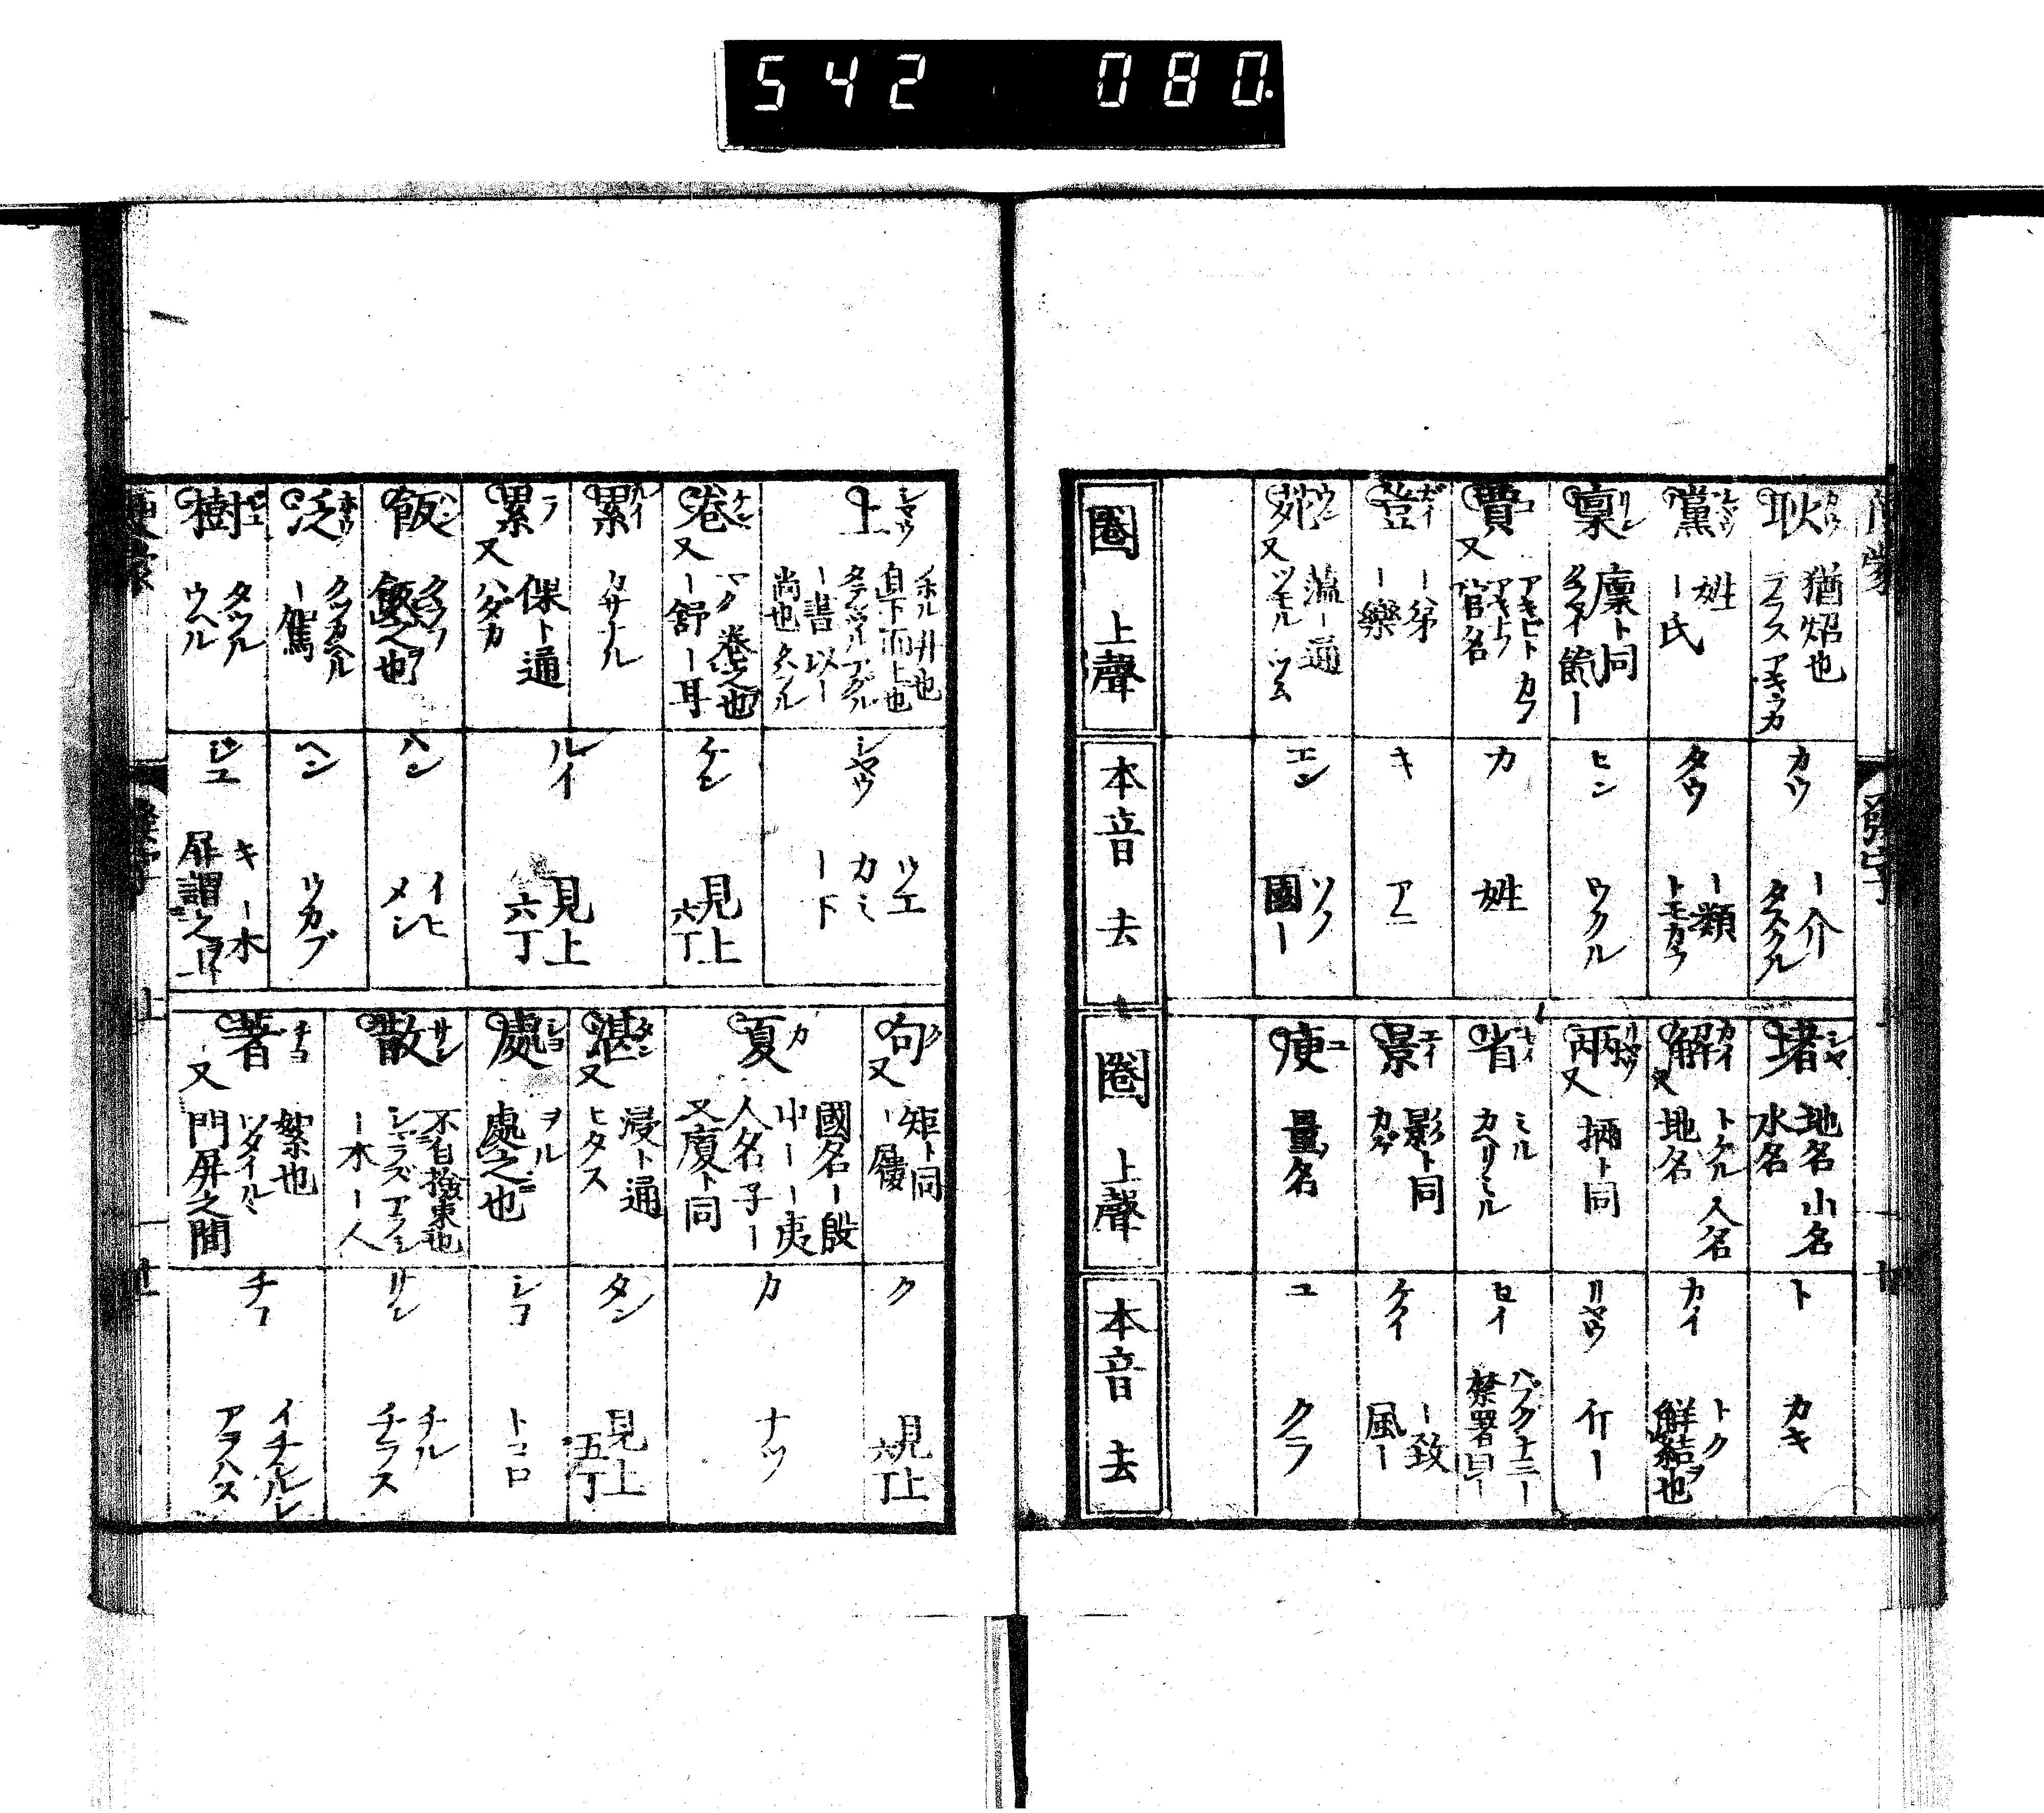 542 080.
耿 カウ
猶炤也
テラス アキラカ
カウ
ー介
タスクル
黨 シヤウ
姓
ー氏
タウ
ー類
トモガラ
稟 リン
廩ト同
ヒン
ウクル
賈 コ
又
アキビト カフ
アキナフ
官名
カ
姓
豈 ガイ
ー弟
ー樂
キ
アニ
苑 ウン
又
薀ー通
ツモル ツム
エン
ソノ
國ー
堵 シヤ
地名 山名
水名
ト
カキ
解 カイ
又
トケル 人名
地名
カイ
トク
解結也
兩 リヤウ
又
裲ト同
リヤウ
斤ー
省 セイ
ミル
カヘリミル
セイ
ハブク 十二ー
禁署曰ー
景 エイ
影ト同
カゲ
ケイ
ー致
風ー
庾 ユ
量名
ユ
クラ
圈 上聲
本音 去
圈 上聲
本音 去
上 シヤウ
ノボル 升也
自下而上也
タテマツル アグル
ー書 以ー
尚也 クハフル
シヤウ
ウエ
カミ
ー下
卷 ケン
又
マク 卷之也
ー舒 ー耳
ケン
見上
六丁
累 ルイ
カサナル
累 ラ
又
倮ト通
ハダカ
ルイ
見上
六丁
飯 ハン
クラフ
飯之也
ハン
イヒ
メシ
泛 ホウ
クツガヘル
ー駕
ヘン
ウカブ
樹 ジユ
タツル
ウヘル
ジユ
キ ー木
屏謂之樹
句 ク
又
矩ト同
ー屨
ク
見上
六丁
夏 カ
國名 ー殷
中ー ー夷
人名 子ー
又廈ト同
カ
ナツ
湛 タン
又
浸ト通
ヒタス
タン
見上
五丁
處 シヨ
ヲル
處之也
シヨ
トコロ
散 サン
不自撿束也
ー木 ー人
サン
チル
チラス
著 チヨ
又
絮也
門屏之間
チヨ
イチジルシ
アラハス